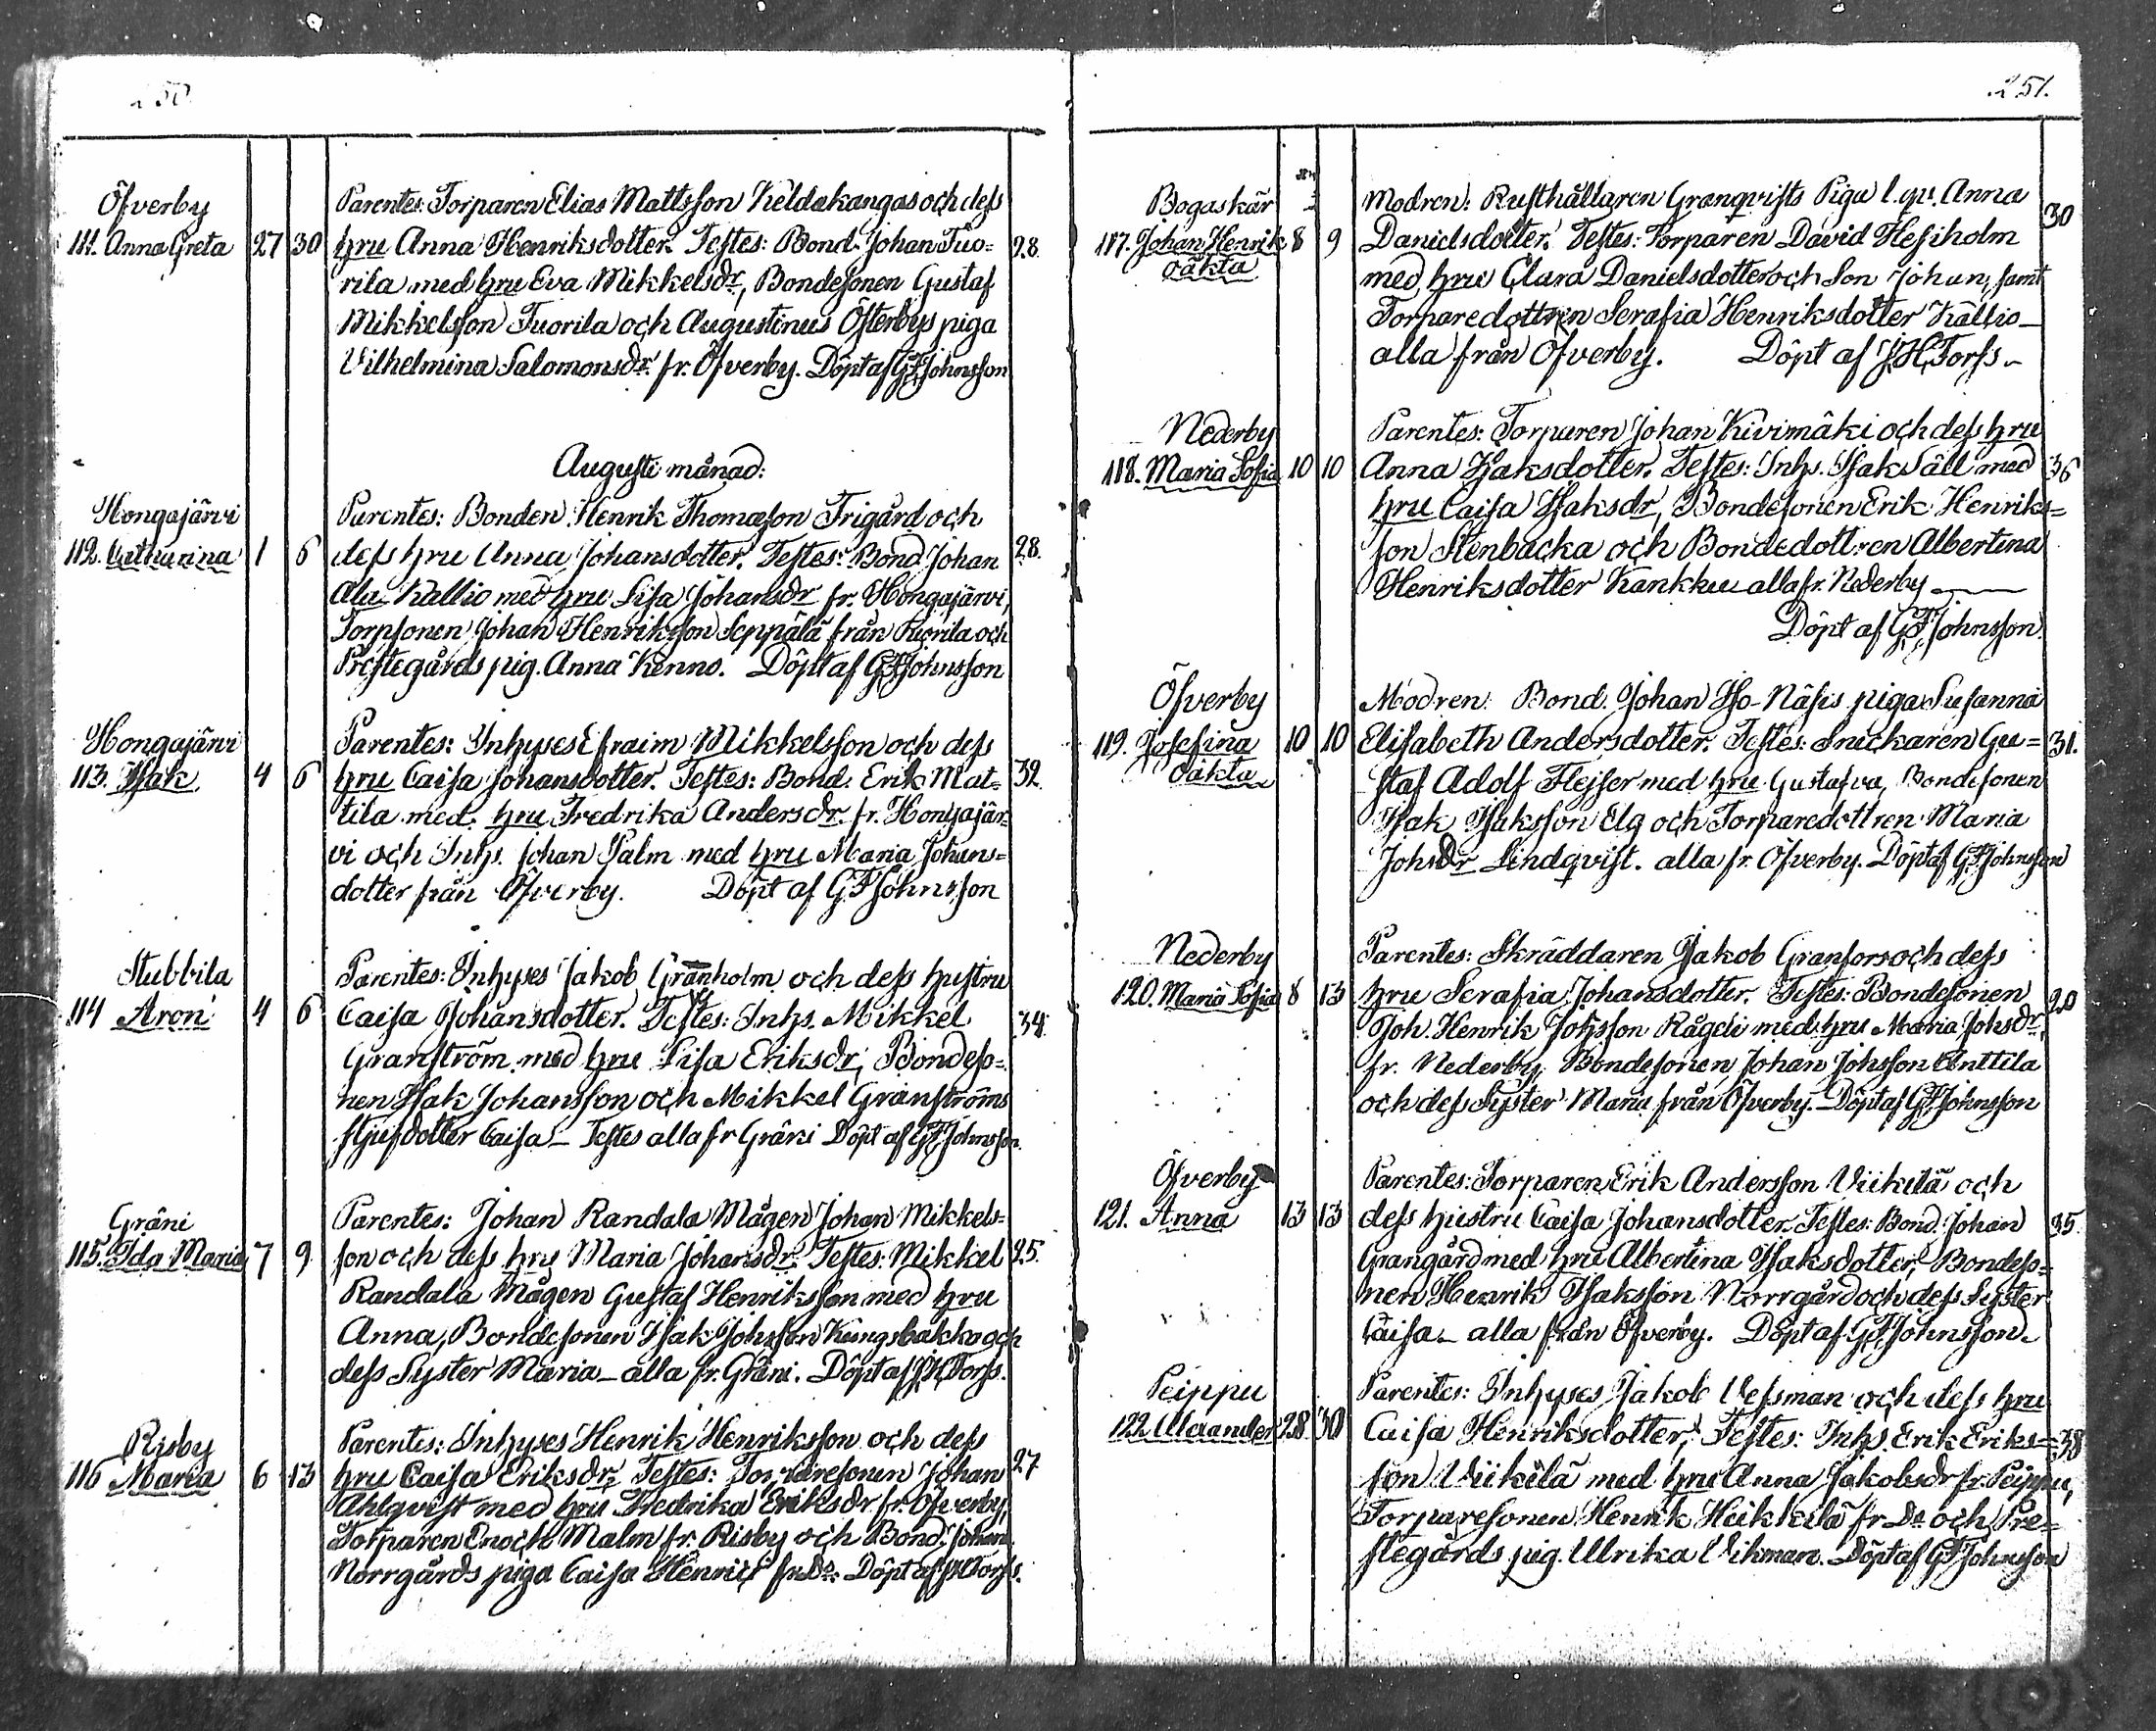 250.
Öfverby
111. Anna Greta 27 30
Parentes: Torparen Elias Mattsson Keldakangas och dess
hru Anna Henriksdotter. Testes: Bond. Johan Tuo= 28.
rila med hru Eva Mikkelsdr, Bondesonen Gustaf
Mikkelsson Tuorila och Augustinus Österbys piga
Vilhelmina Salomonsdr. fr. Öfverby. Döpt af G.F. Johnsson
Augusti månad:
Hongajärvi
112. Catharina 1 6
Parentes: Bonden Henrik Thomasson Frigård och
dess hru Anna Johansdotter. Testes: Bond Johan 28.
Ala Kallio med hru Lisa Johansdr fr. Hongajärvi,
Torpsonen Johan Henriksson Seppälä från Tuorila och
Prestegårds pig. Anna Kenno. Döpt af G.F. Johnsson
Hongajärvi
113. Isak 4 6
Parentes: Inhyses Efraim Mikkelsson och dess
hru Caisa Johansdotter. Testes: Bond. Erik Mat= 32.
tila med hru Fredrika Andersdr. fr. Hongajär=
vi och Inhs. Johan Palm med hru Maria Johans=
dotter från Öfverby. Döpt af G.F. Johnsson
Stubbila
114 Aron 4 6
Parentes: Inhyses Jakob Granholm och dess hustru
Caisa Johansdotter. Testes: Inhs. Mikkel 34.
Granström med hru Lisa Eriksdr, Bondeso=
nen Isak Johansson och Mikkel Granströms
stjufdotter Caisa – Testes alla fr Gräni Döpt af G.F. Johnsson
Gräni
115. Ida Maria 7 9
Parentes: Johan Randala Mågen Johan Mikkels=
son och dess hru Maria Johansdr. Testes: Mikkel 25.
Randala Mågen Gustaf Henriksson med hru
Anna, Bondesonen Isak Johsson Kungsbakka och
dess Syster Maria – alla fr. Gräni. Döpt af J.H. Torss.
Risby
116 Maria 6 13
Parentes: Inhyses Henrik Henriksson och dess
hru Caisa Eriksdr. Testes: Torparesonen Johan 27
Ahlqvist med hru Fredrika Eriksdr fr. Öfverby,
Torparen Enoch Malm fr. Risby och Bond. Johan
Norrgårds piga Caisa Henrici fr. Do: Döpt af J.H. Torss.
251.
Bogaskär
117. Johan Henrik 8 9
oäkta
Modren: Rusthållaren Granqvists Piga l. qv. Anna 30
Danielsdotter. Testes: Torparen David Hessholm
med hru Clara Danielsdotter och Son Johan, samt
Torparedottren Serafia Henriksdotter Kallio –
alla från Öfverby. Döpt af J.H. Torss –
Nederby
118. Maria Sofia 10 10
Parentes: Torparen Johan Kivimäki och dess hru
Anna Isaksdotter. Testes: Inhs. Isak Säll med 36
hru Caisa Isaksdr, Bondesonen Erik Henriks=
son Stenbacka och Bondedottren Albertina
Henriksdotter Kankku alla fr. Nederby –
Döpt af G.F. Johnsson.
Öfverby
119. Josefina 10 10
oäkta
Modren: Bond. Johan Iso-Näsis piga Susanna
Elisabeth Andersdotter. Testes: Snickaren Gu= 31.
staf Adolf Flejser med hru Gustafva, Bondesonen
Isak Isaksson Elg och Torparedottren Maria
Johsdr Lindqvist. alla fr. Öfverby. Döpt af G.F. Johnsson
Nederby
120. Maria Sofia 8 13
Parentes: Skräddaren Jakob Granfors och dess
hru Serafia Johansdotter. Testes: Bondesonen 20
Joh. Henrik Johsson Rågeli med hru Maria Johsdr.
fr. Nederby, Bondesonen Johan Johsson Anttila
och dess Syster Maria från Öfverby. Döpt af G.F. Johnsson
Öfverby
121. Anna 13 13
Parentes: Torparen Erik Andersson Viikilä och
dess hustru Caisa Johansdotter. Testes: Bond. Johan 35.
Grangård med hru Albertina Isaksdotter, Bondeso=
nen Henrik Isaksson Norrgård och dess Syster
Caisa – alla från Öfverby. Döpt af G.F. Johnsson –
Peippu
122 Alexander 28 30
Parentes: Inhyses Jakob Vessman och dess hru
Caisa Henriksdotter, Testes: Inhs. Erik Eriks= 38
son Viikilä med hru Anna Jakobsdr fr. Peippu,
Torparesonen Henrik Heikkilä fr Do och Pre=
stegårds pig. Ulrika Vikman. Döpt af G.F. Johnsson